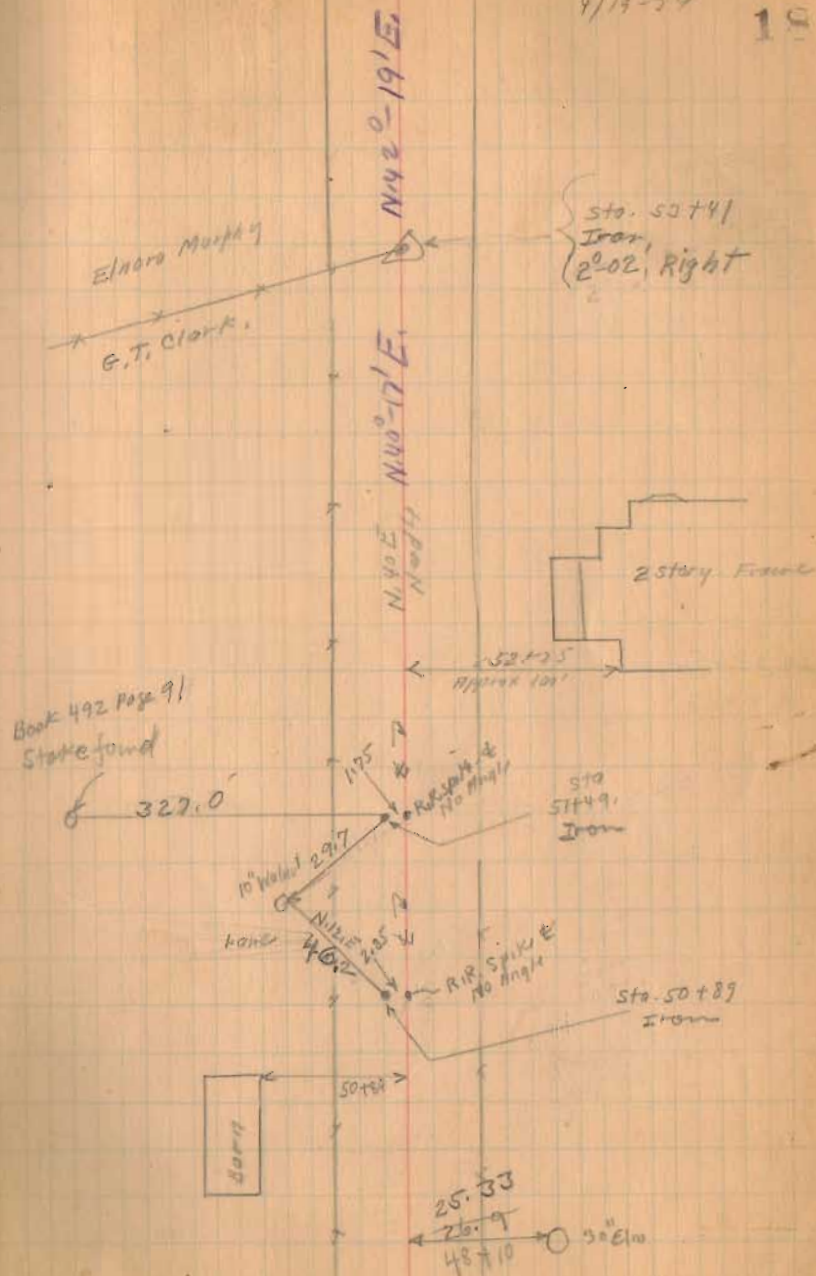 N.42°-19'E.
Elnora Murphy
G.T. Clark.
Iron,
2°-02' Right
N.40°-17'E.
N.40E
2 Story Frame
52+25
Approx 100'
Book 492 Page 91
Stake found
327.0'
1.75
R.R. Spike &
No Angle
Sta
51+49.
Iron
10" Walnut
29.7
N.12.E
2.35
46.2
R.R. Spike &
No Angle
Sta. 50+89
Iron
Barn
25.33
26.9
48+10
30" Elm